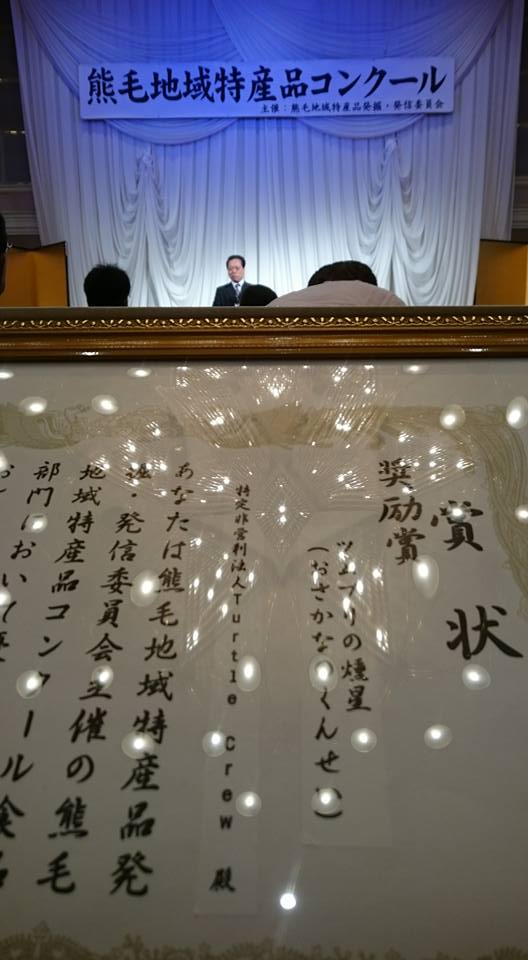 熊毛地域特産品コンクール
主催：熊毛地域特産品発掘・発信委員会
賞状
奨励賞
ツムブリの燻星
(おさかなのくんせい)
特定非営利法人Turtle Crew 殿
あなたは熊毛地域特産品発
掘・発信委員会主催の熊毛
地域特産品コンクール
部門において